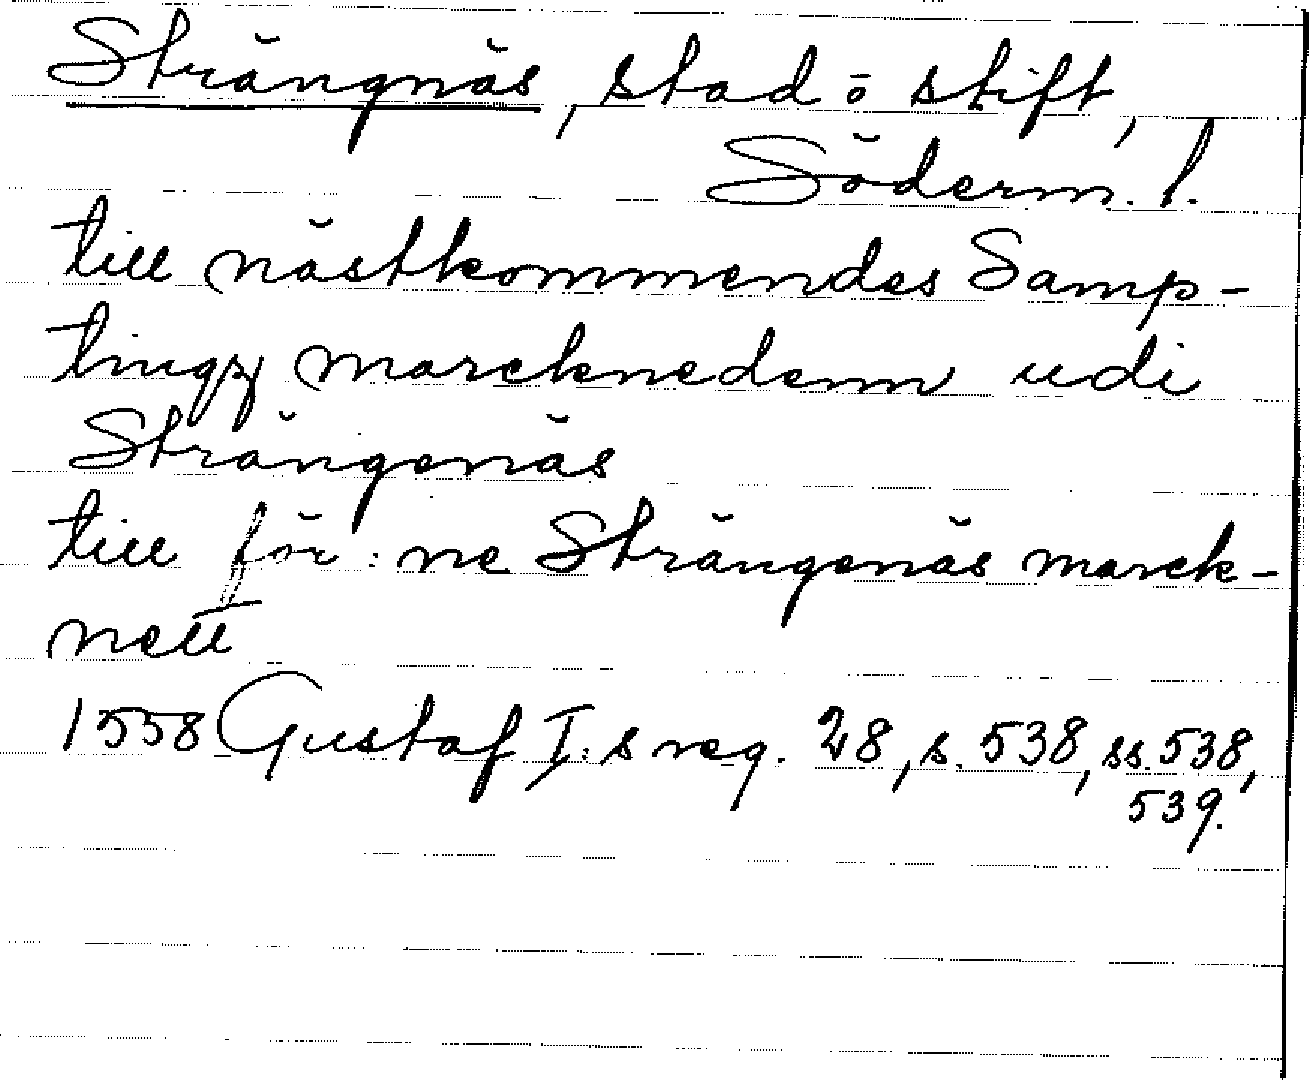 Strängnäs, stad o stift,
Söderm. l.
till nästkommendes Samp-
tingz marcknedenn udi
Strängenäs
till för:ne Strängenäs marck-
nett
1558 Gustaf I:s reg. 28, s. 538, ss. 538,
539.